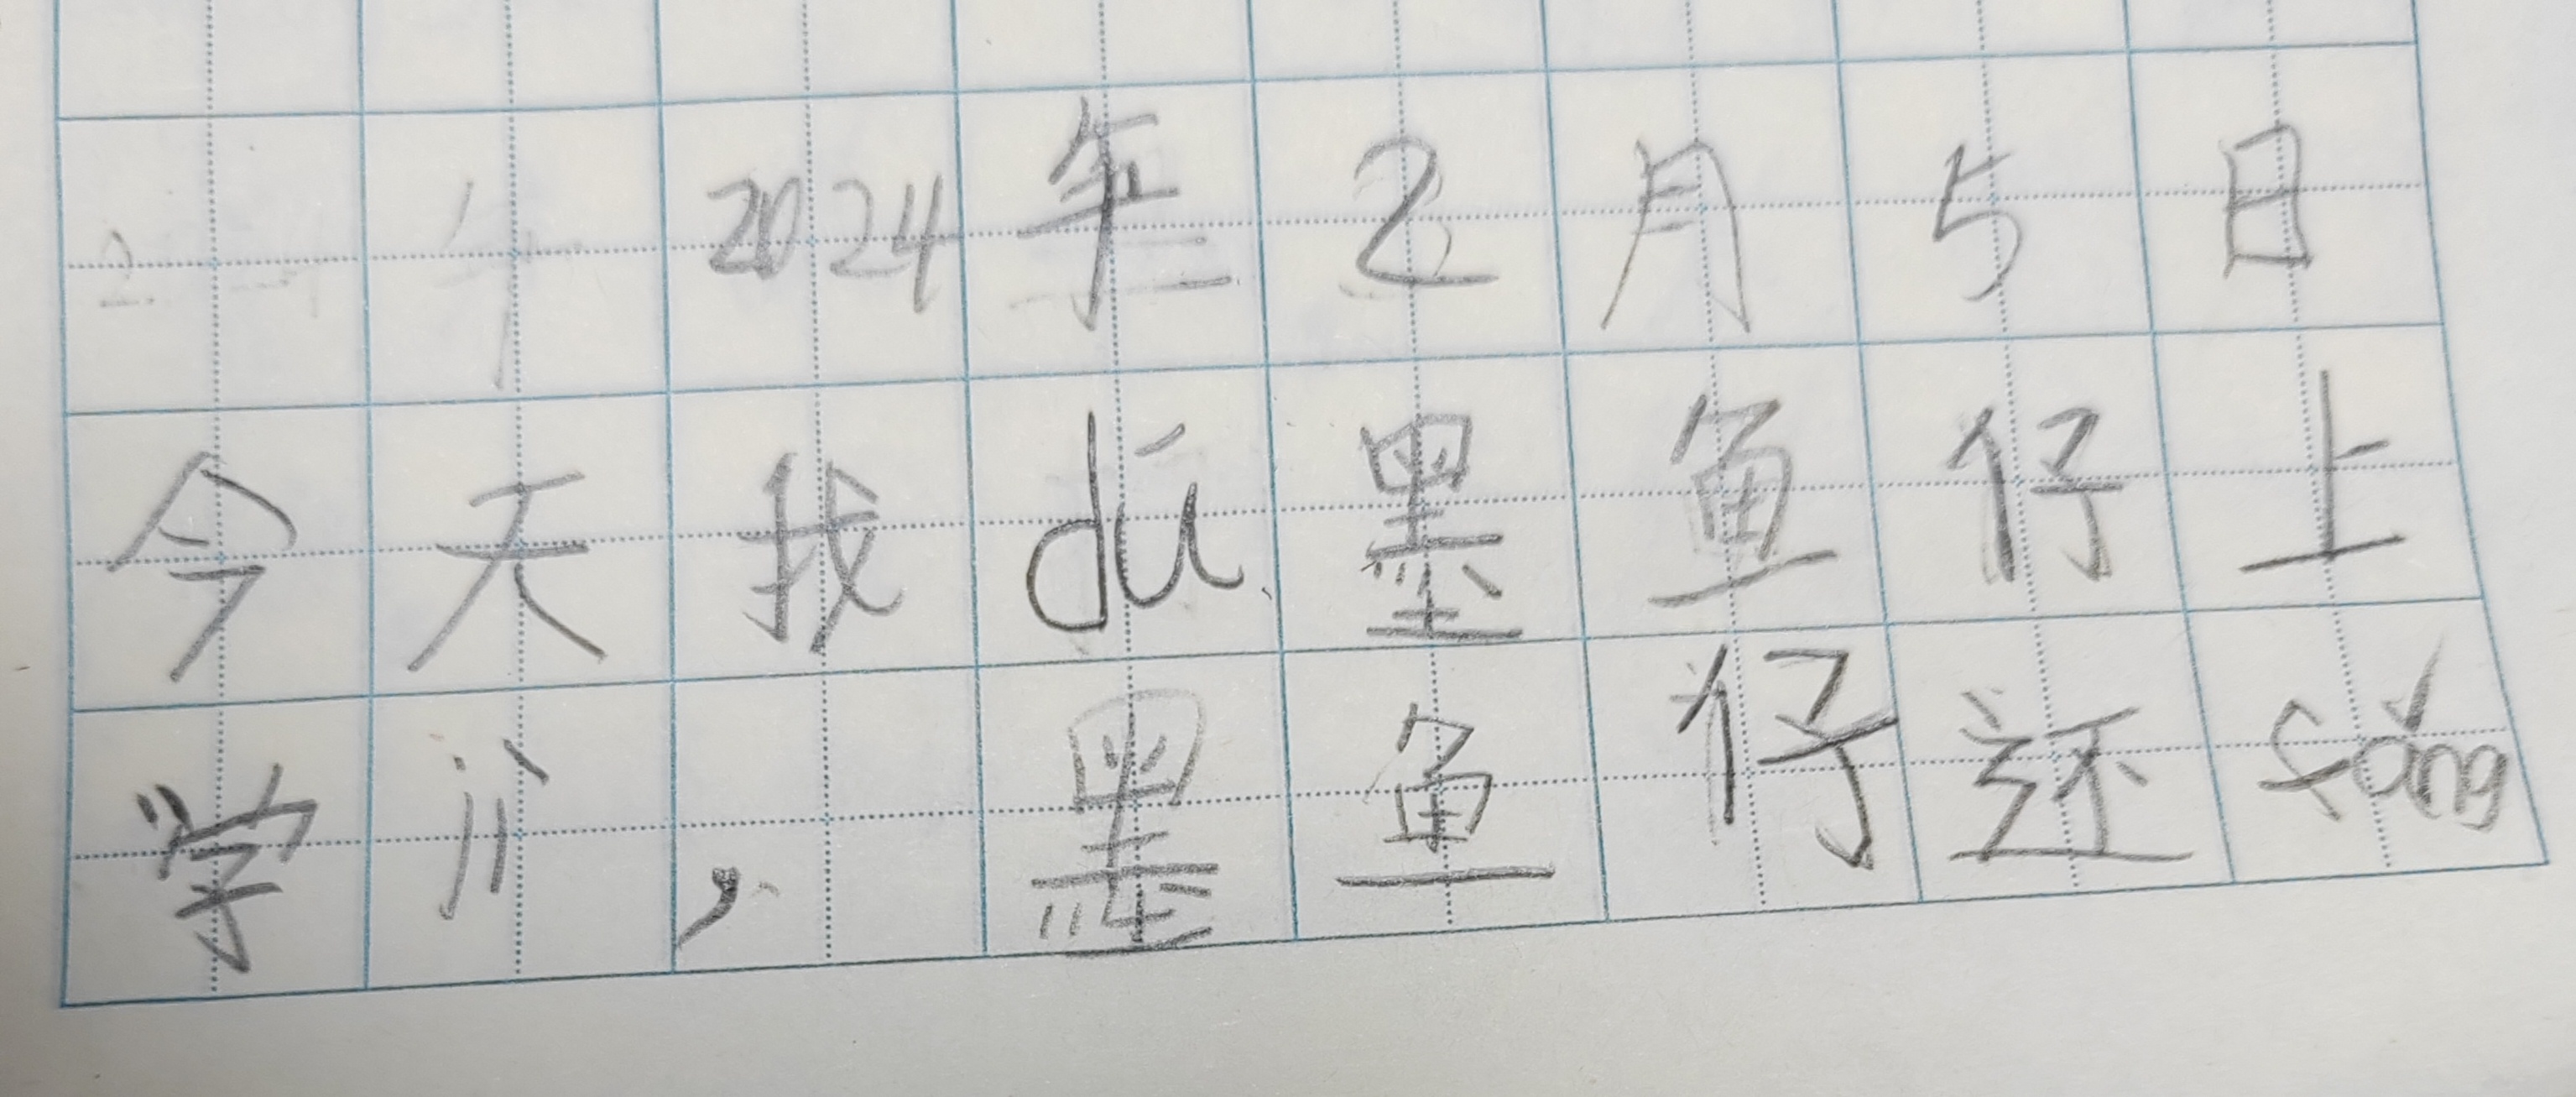 2024年2月5日
今天我dú墨鱼仔上
学jì，墨鱼仔还fǎng